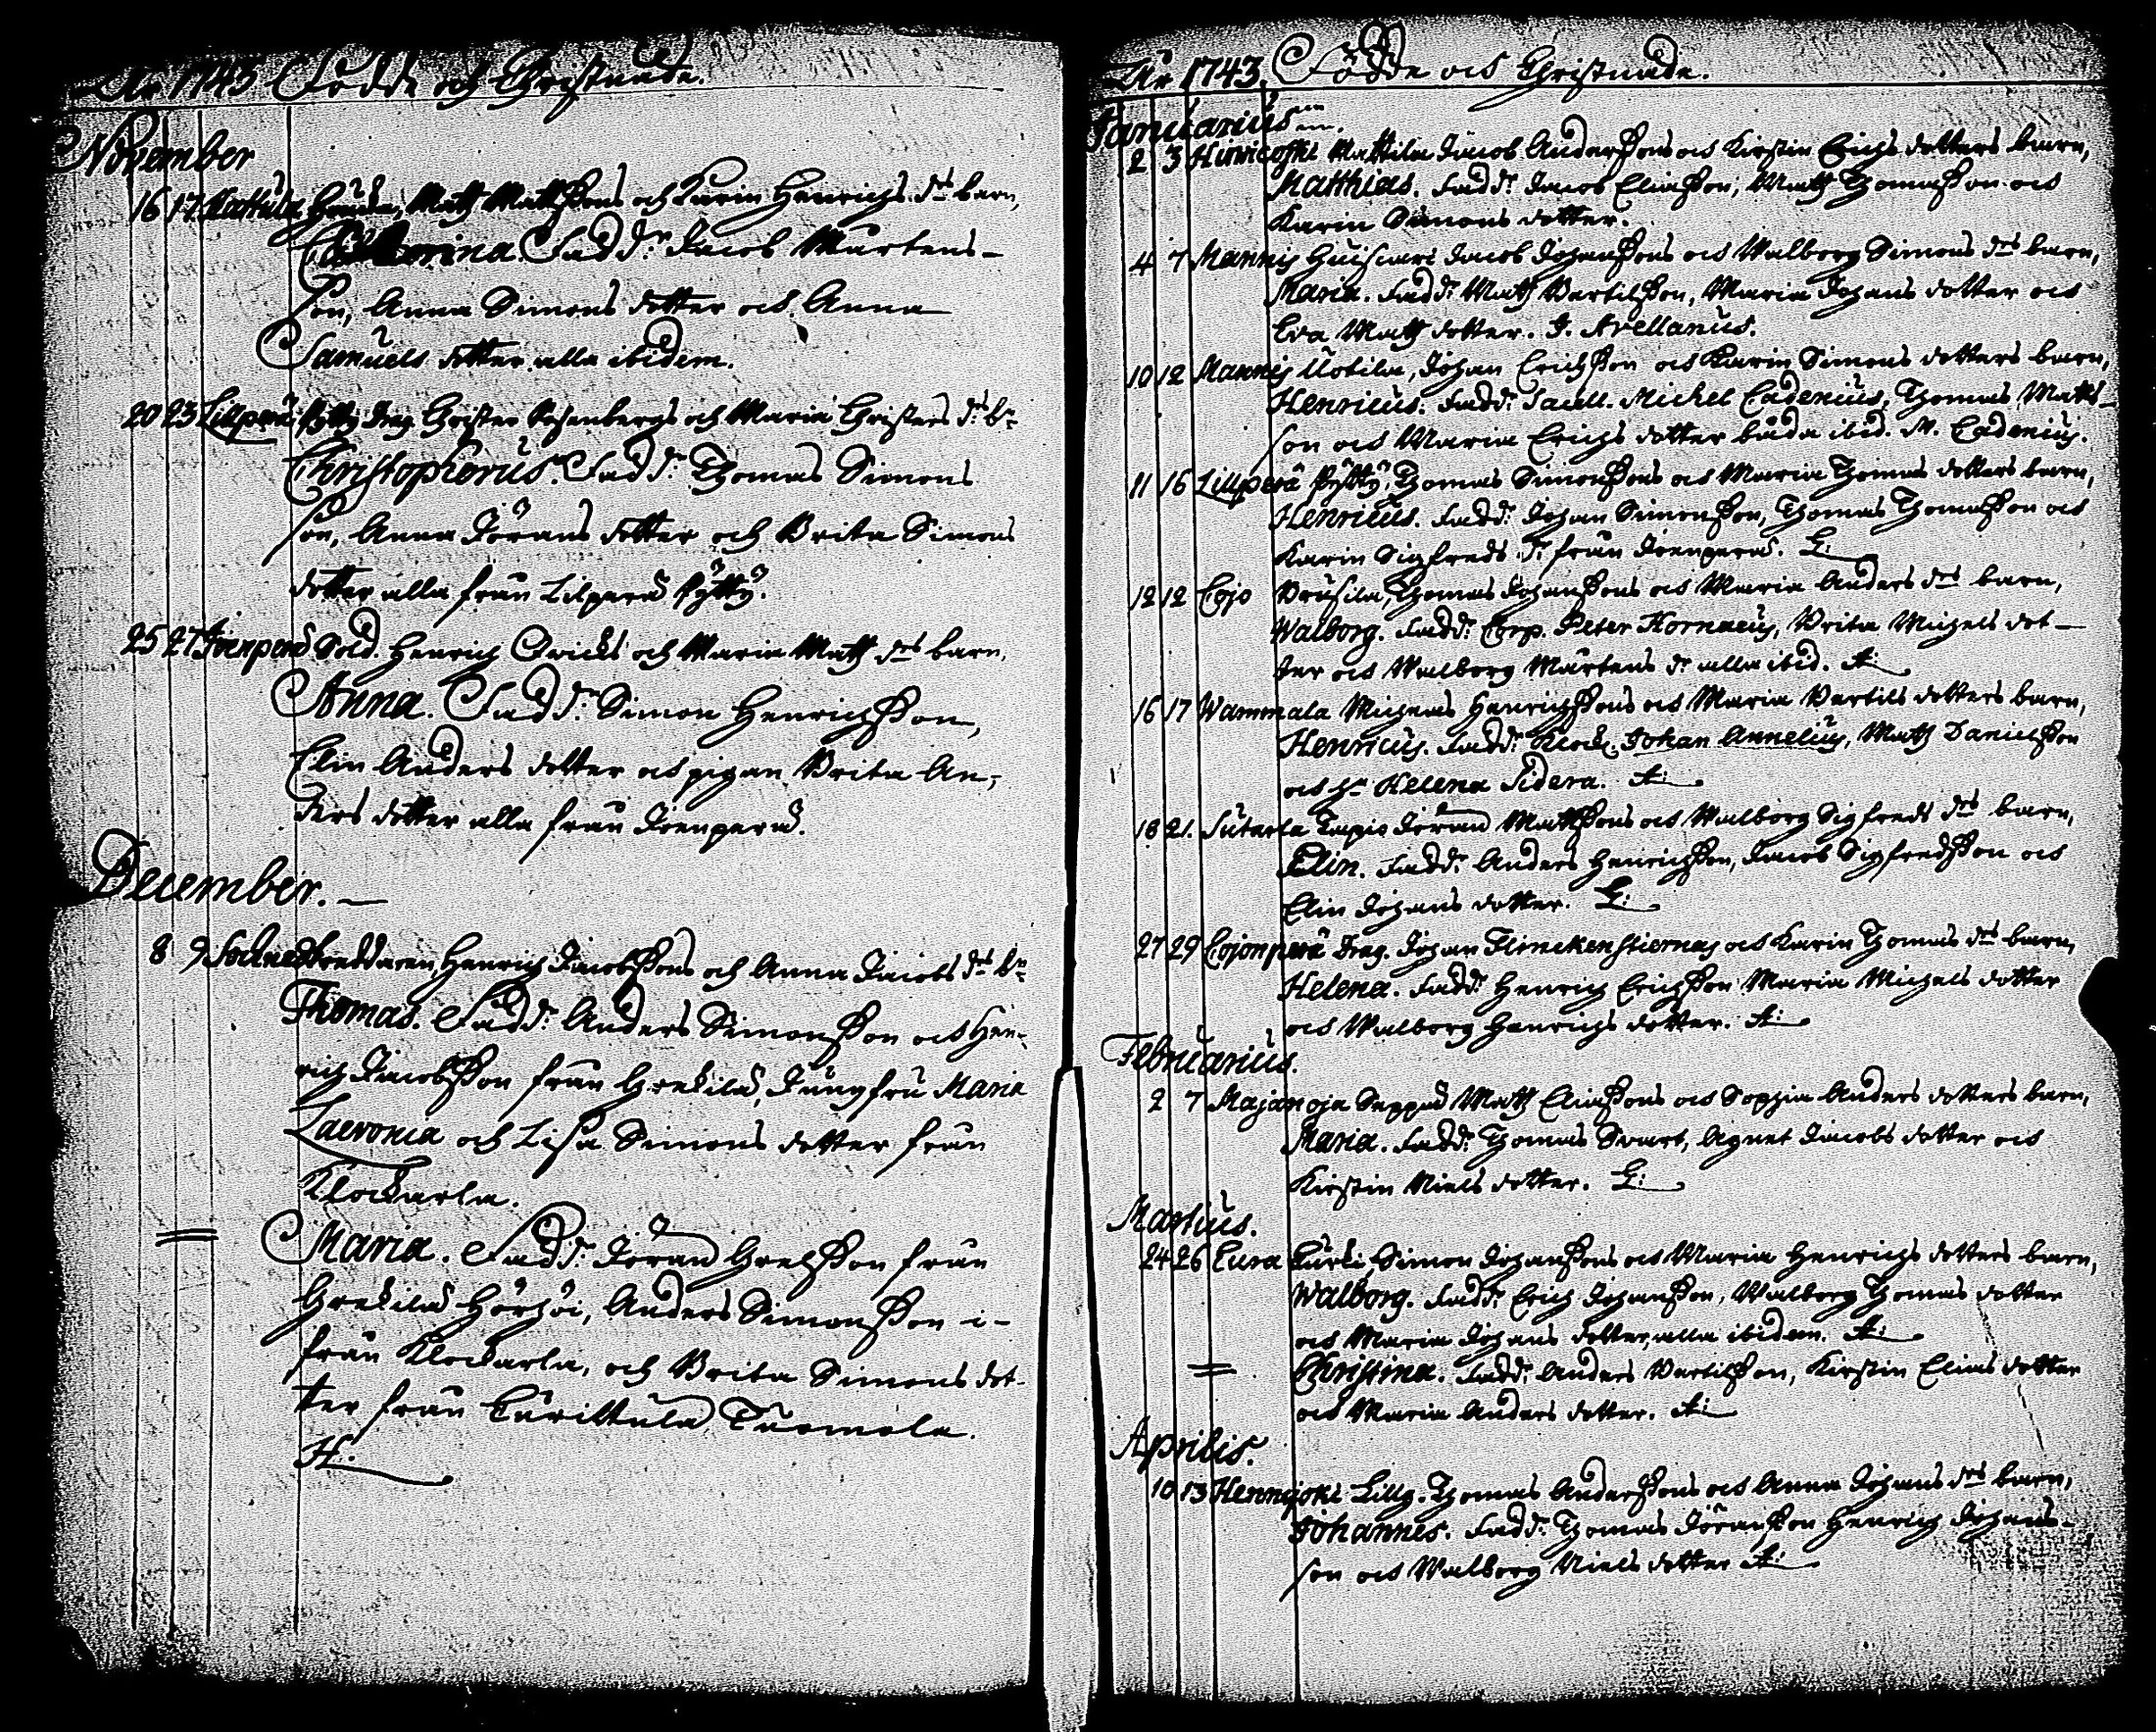 År 1743 Födde och Christnade.
November
16 17. Kattula Heicka, Matts Mattssons och Karin Henrichs drs barn,
Catharina. Fadd:r Jacob Mårtens-
son, Anna Simons dotter och Anna
Samuels dotter alla ibidem.
20 23 Lillperä Pytty Drag. Christer Rosenbergs och Maria Christers d:s b:n
Christophorus. Fadd:r Thomas Simons
son, Anna Jörans dotter och Brita Simons
dotter alla från Lilperä Pytty.
25 27 Joenperä Sold. Henrich Qvicks och Maria Matts drs barn,
Anna. Fadd:r Simon Henrichsson,
Elin Anders dotter och pigan Brita An-
ders dotter alla från Joenperä.
December.
8 9 Henrich Jacobssons och Anna Jacobs drs b:n
Thomas. Fadd:r Anders Simonsson och Hen-
rich Jacobsson från Grekilä, Jungfru Maria
Laevonia och Lisa Simons dotter från
Klockarla.
= Maria. Fadd:r Jöran Grelsson från
Grekilä Hörhöi, Anders Simonsson i-
från Klockarla, och Brita Simons dot-
ter från Turittula Tuomola.
H.
År 1743. Födde och Christnade.
Januarius
2 3 Hinnicoski Mattila Jacob Anderssons och Kirstin Erichs dotters barn,
Matthias. Fadd:r Jacob Eliasson, Matts Thomasson och
Karin Simons dotter.
4 7 Mannis Huiscari Jacob Johanssons och Walborg Simons drs barn,
Maria. Fadd:r Matts Bertilsson, Maria Johans dotter och
Eva Matts dotter. J. Avellanus.
10 12 Mannis Uotila, Johan Erichsson och Karin Simons dotters barn,
Henricus. Fadd:r Sacell. Michel Cadenius, Thomas Matts-
son och Maria Erichs dotter båda ibid. M. Cadenius.
11 16 Lillperä Pytty, Thomas Simonssons och Maria Thomas dotters barn,
Henricus. Fadd:r Johan Simonsson, Thomas Thomasson och
Karin Sigfreds dr från Joenperä.
12 12 Cojo Prusila, Thomas Johanssons och Maria Anders drs barn,
Walborg. Fadd:r Corp. Peter Kornaeus, Brita Michels dot-
ter och Walborg Mårtens dr alla ibid. A:
16 17 Wammala Micheas Henrichssons och Maria Bertils dotters barn,
Henricus. Fadd:r Klock. Johan Annelius, Matts Danielsson
och h:u Helena Sidera. A:
18 21. Sutarla Tapio Jöran Mattssons och Walborg Sigfreds drs barn,
Elin. Fadd:r Anders Henrichsson, Jacob Sigfredsson och
Elin Johans dotter.
27 29 Cojonperä Drag. Johan Flinckenstiernas och Karin Thomas drs barn,
Helena. Fadd:r Henrich Erichsson Maria Michels dotter
och Walborg Henrichs dotter. A:
Februarius.
2 7 Majanoja Seppä Matts Eliassons och Sophia Anders dotters barn,
Maria. Fadd:r Thomas Svart, Agnet Jacobs dotter och
Kirstin Niels dotter.
Martius.
24 26 Eura Kurki Simon Johanssons och Maria Henrichs dotters barn,
Walborg. Fadd:r Erich Johansson, Walborg Thomas dotter
och Maria Johans dotter, alla ibidem. A:
= Christina. Fadd:r Anders Bertilsson, Kirstin Elias dotter
och Maria Anders dotter. A:
Aprilis.
10 13 Hennijoki Lilly. Thomas Anderssons och Anna Johans drs barn,
Johannes. Fadd:r Thomas Jöransson Henrich Johans-
son och Walborg Niels dotter A: